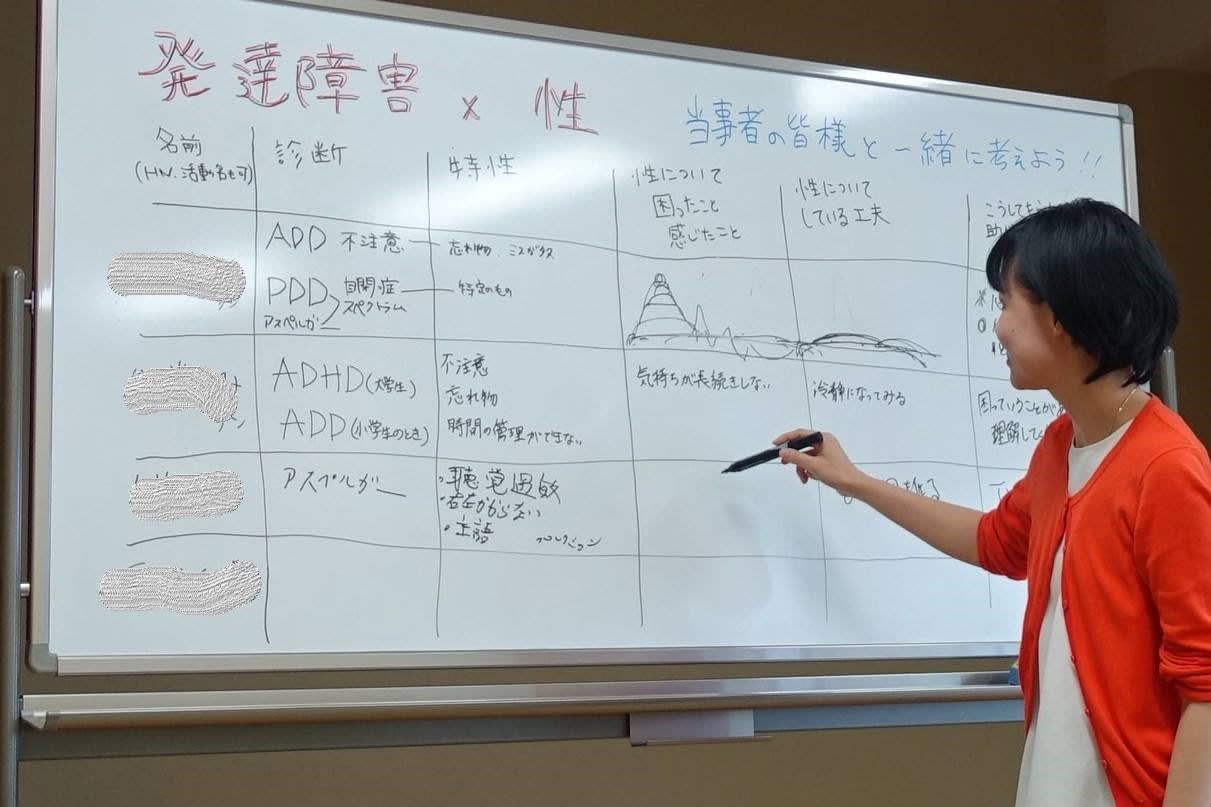 発達障害 × 性
当事者の皆様と一緒に考えよう!!
名前
(HN、活動名も可)
診断
特性
性について
困ったこと
感じたこと
性について
している工夫
こうしてもら
助
ADD 不注意
忘れ物、ミスが多々
PDD 自閉症
スペクトラム
アスペルガー
特定のもの
ADHD(大学生)
ADD(小学生のとき)
不注意
忘れ物
時間の管理ができない
気持ちが長続きしない
冷静になってみる
困っていることがあ
理解して
アスペルガー
・聴覚過敏
・右左がわからない
・主語